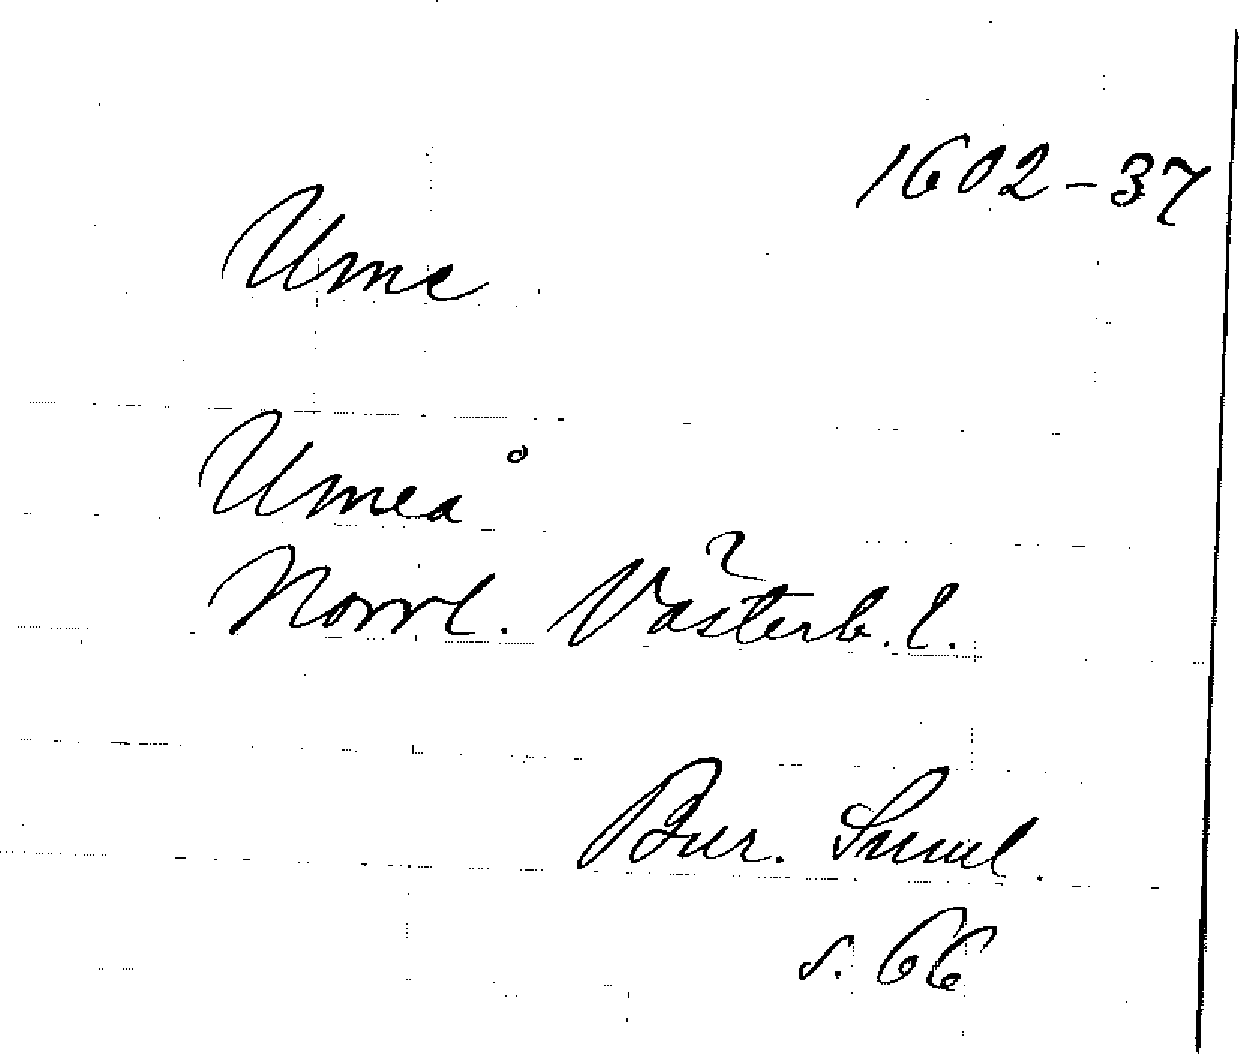 1602-37
Ume
Umeå
Norrl. Västerb. l.
Bur. Suml.
s. 66